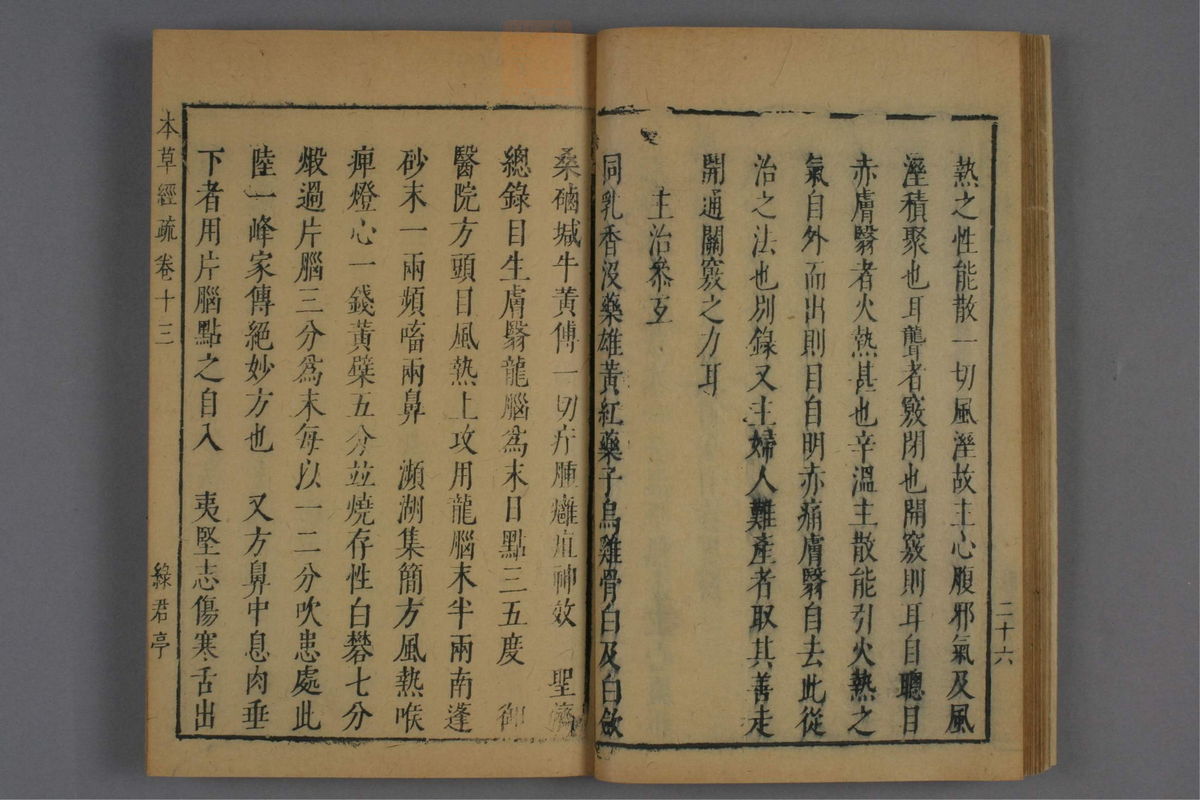 熱之性能散一切風溼故主心腹邪氣及風
溼積聚也耳聾者竅閉也開竅則耳自聰目
赤膚翳者火熱甚也辛溫主散能引火熱之
氣自外而出則目自明赤痛膚翳自去此從
治之法也別錄又主婦人難產者取其善走
開通關竅之力耳
主治叅互
同乳香沒藥雄黃紅藥子烏雞骨白及白斂
二十六
桑硇堿牛黃傅一切疔腫癰疽神效　聖濟
總錄目生膚翳龍腦為末日點三五度　御
醫院方頭目風熱上攻用龍腦末半兩南蓬
砂末一兩頻㗜兩鼻　瀕湖集簡方風熱喉
痺燈心一錢黃檗五分並燒存性白礬七分
煅過片腦三分為末每以一二分吹患處此
陸一峰家傳絕妙方也　又方鼻中息肉垂
下者用片腦點之自入　夷堅志傷寒舌出
本草經疏 卷十三
綠君亭